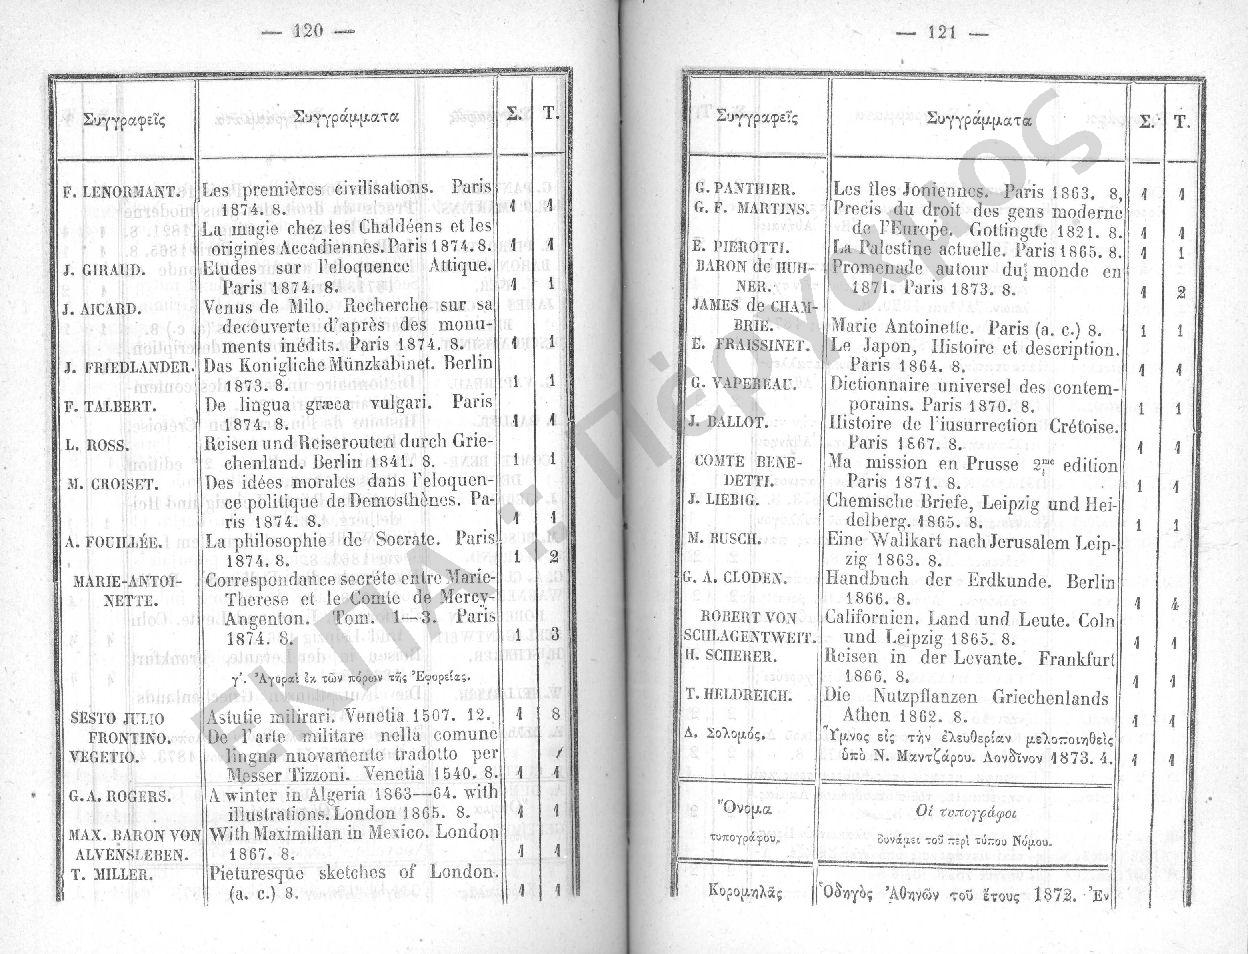 — 120 —
Συγγραφεῖς Συγγράμματα Σ. Τ.
F. LENORMANT. Les premières civilisations. Paris
1874. 8. 1 1
La magie chez les Chaldéens et les
origines Accadiennes. Paris 1874. 8. 1 1
J. GIRAUD. Etudes sur l'eloquence Attique.
Paris 1874. 8. 1 1
J. AICARD. Venus de Milo. Recherche sur sa
decouverte d'après des monu-
ments inédits. Paris 1874. 8. 1 1
J. FRIEDLANDER. Das Konigliche Münzkabinet. Berlin
1873. 8. 1 1
F. TALBERT. De lingua græca vulgari. Paris
1874. 8. 1 1
L. ROSS. Reisen und Reiserouten durch Grie-
chenland. Berlin 1841. 8. 1 1
M. CROISET. Des idées morales dans l'eloquen-
ce politique de Demosthènes. Pa-
ris 1874. 8. 1 1
A. FOUILLÉE. La philosophie de Socrate. Paris
1874. 8. 1 2
MARIE-ANTOI- Correspondance secréte entre Marie-
NETTE. Therese et le Comte de Mercy-
Angenton. Tom. 1—3. Paris
1874. 8. 1 3
γ'. Ἀγοραὶ ἐκ τῶν πόρων τῆς Ἐφορείας.
SESTO JULIO Astutie milirari. Venetia 1507. 12. 1 8
FRONTINO. De l'arte militare nella comune
VEGETIO. lingna nuovamente tradotto per
Messer Tizzoni. Venetia 1540. 8. 1 1
G.A. ROGERS. A winter in Algeria 1863—64. with
illustrations. London 1865. 8. 1 1
MAX. BARON VON With Maximilian in Mexico. London
ALVENSLEBEN. 1867. 8. 1 1
T. MILLER. Pieturesque sketches of London.
(a. c.) 8. 1 1
— 121 —
Συγγραφεῖς Συγγράμματα Σ. Τ.
G. PANTHIER. Les îles Joniennes. Paris 1863. 8, 1 1
G. F. MARTINS. Precis du droit des gens moderne
de l'Europe. Gottingue 1821. 8. 1 1
E. PIEROTTI. La Palestine actuelle. Paris 1865. 8. 1 1
BARON de HUH- Promenade autour du monde en
NER. 1871. Paris 1873. 8. 1 2
JAMES de CHAM-
BRIE. Marie Antoinette. Paris (a. c.) 8. 1 1
E. FRAISSINET. Le Japon, Histoire et description.
Paris 1864. 8. 1 1
G. VAPEREAU. Dictionnaire universel des contem-
porains. Paris 1870. 8. 1 1
J. BALLOT. Histoire de l'iusurrection Crétoise.
Paris 1867. 8. 1 1
COMTE BENE- Ma mission en Prusse 2me edition
DETTI. Paris 1871. 8. 1 1
J. LIEBIG. Chemische Briefe, Leipzig und Hei-
delberg. 1865. 8. 1 1
M. BUSCH. Eine Wallkart nach Jerusalem Leip-
zig 1863. 8.
G. A. CLODEN. Handbuch der Erdkunde. Berlin
1866. 8. 1 4
ROBERT VON Californien. Land und Leute. Coln
SCHLAGENTWEIT. und Leipzig 1865. 8. 1 1
H. SCHERER. Reisen in der Levante. Frankfurt
1866. 8. 1 1
T. HELDREICH. Die Nutzpflanzen Griechenlands
Athen 1862. 8. 1 1
Δ. Σολομός. Ὕμνος εἰς τὴν ἐλευθερίαν μελοποιηθεὶς
ὑπὸ Ν. Μαντζάρου. Λονδῖνον 1873. 4. 1 1
Ὄνομα Οἱ τυπογράφοι
τυπογράφου. δυνάμει τοῦ περὶ τύπου Νόμου.
Κορομηλᾶς Ὁδηγὸς Ἀθηνῶν τοῦ ἔτους 1872. Ἐν
ΕΚΠΑ :: Πέργαμος